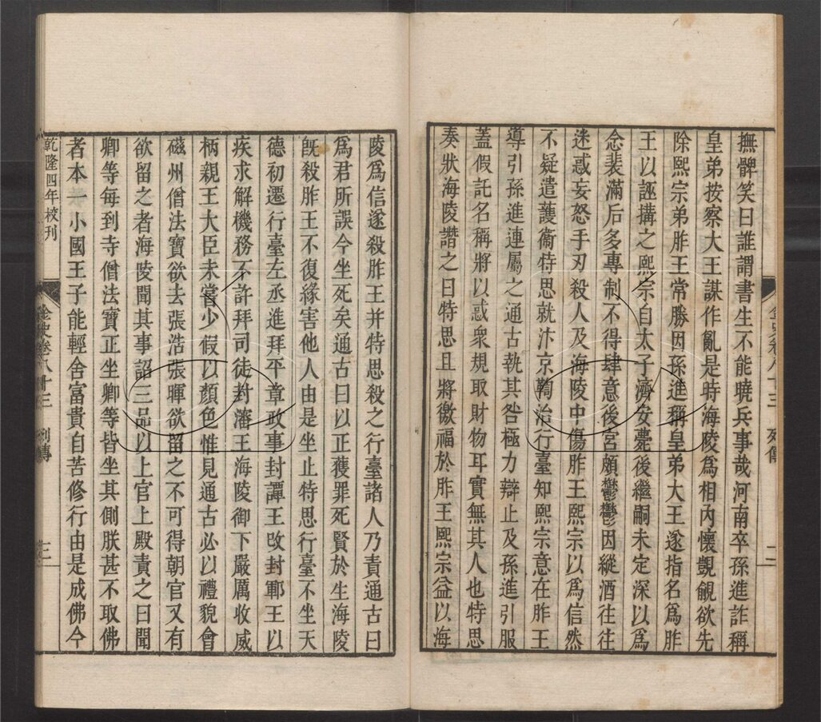 撫髀笑曰誰謂書生不能曉兵事哉河南卒孫進詐稱
皇弟按察大王謀作亂是時海陵爲相內懷覬覦欲先
除熙宗弟胙王常勝因孫進稱皇弟大王遂指名爲胙
王以誣搆之熙宗自太子濟安薨後繼嗣未定深以爲
念裴滿后多專制不得肆意後宮頗鬱鬱因縱酒往往
迷惑妄怒手刃殺人及海陵中傷胙王熙宗以爲信然
不疑遣護衞特思就汴京鞫治行臺知熙宗意在胙王
導引孫進連屬之通古執其咎極力辯止及孫進引服
蓋假託名稱將以惑衆規取財物耳實無其人也特思
奏狀海陵譖之曰特思且將徼福於胙王熙宗益以海
金史卷八十三 列傳 二
陵爲信遂殺胙王并特思殺之行臺諸人乃責通古曰
爲君所誤今坐死矣通古曰以正獲罪死賢於生海陵
旣殺胙王不復緣害他人由是坐止特思行臺不坐天
德初遷行臺左丞進拜平章政事封譚王改封鄆王以
疾求解機務不許拜司徒封瀋王海陵御下嚴厲收威
柄親王大臣未嘗少假以顏色惟見通古必以禮貌會
磁州僧法寶欲去張浩張暉欲留之不可得朝官又有
欲留之者海陵聞其事詔三品以上官上殿責之曰聞
卿等每到寺僧法寶正坐卿等皆坐其側朕甚不取佛
者本一小國王子能輕舍富貴自苦修行由是成佛今
乾隆四年校刊
金史卷八十三 列傳 三